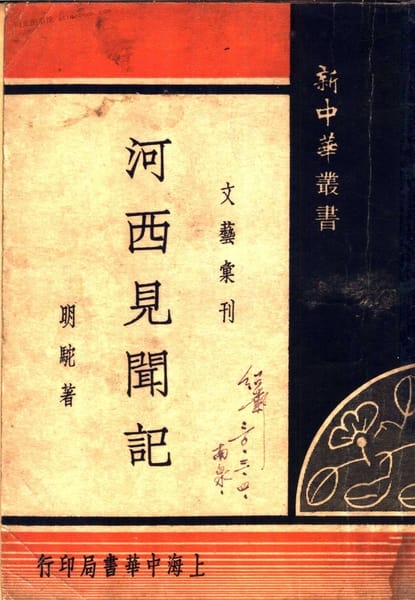 新中華叢書
文藝彙刊
河西見聞記
明駝著
三〇・三・四・
南泉・
上海中華書局印行